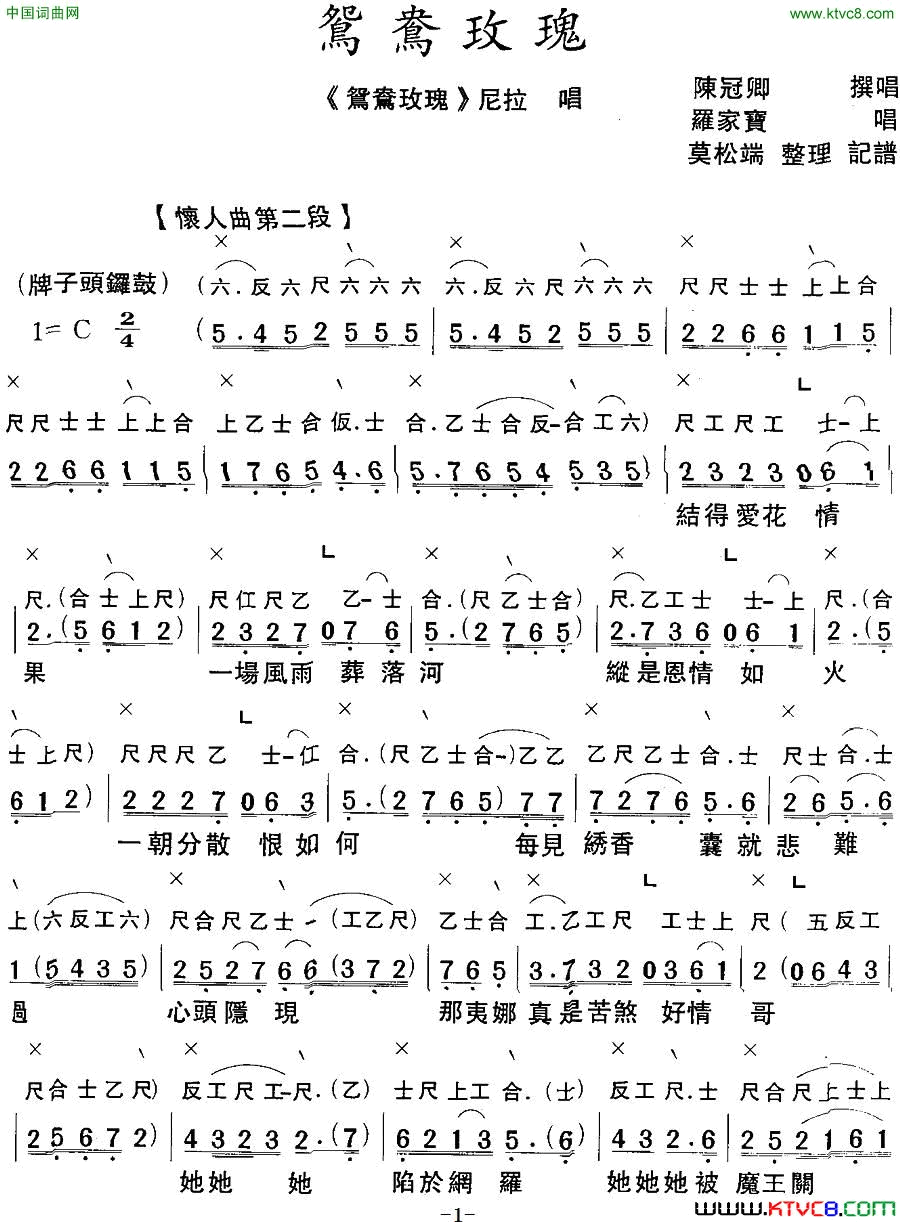 中国词曲网
www.ktvc8.com
鴛鴦玫瑰
《鴛鴦玫瑰》尼拉 唱
陳冠卿 撰唱
羅家寶 唱
莫松端 整理 記譜
【懷人曲第二段】
(牌子頭鑼鼓) (六.反六尺六六六 六.反六尺六六六 尺尺士士上上合
1=C 2/4 (5.452 555 | 5.452 555 | 2266 115 |
尺尺士士上上合 上乙士合仮.士 合.乙士合反-合工六) 尺工尺工 士-上
2266 115 | 1765 4.6 | 5.7654 535) | 2323 06 1 |
結得愛花 情
尺.(合士上尺) 尺仜尺乙 乙-士 合.(尺乙士合) 尺.乙工士 士-上 尺.(合
2.(5 612) | 2327 07 6 | 5.(2 765) | 2.736 06 1 | 2.(5
果 一場風雨 葬落河 縱是恩情 如 火
士上尺) 尺尺尺乙 士-仜 合.(尺乙士合-)乙乙 乙尺乙士合.士 尺士合.士
612) | 2227 06 3 | 5.(2 765) 77 | 7276 5.6 | 265.6
一朝分散 恨如何 每見 綉香 囊就悲難
上(六反工六) 尺合尺乙士-(工乙尺) 乙士合 工.乙工尺 工士上 尺(五反工
1(5435) | 252766(372) | 765 | 3.732 0361 | 2(0643
過 心頭隱現 那夷娜真是苦煞 好情哥
尺合士乙尺) 反工尺工-尺.(乙) 士尺上工合.(士) 反工尺.士 尺合尺上士上
25672) | 4323 2.(7) | 6213 5.(6) | 432.6 | 252161 |
她她 她 陷於網羅 她她她被 魔王關
-1-
WWW.KTVC8.COM